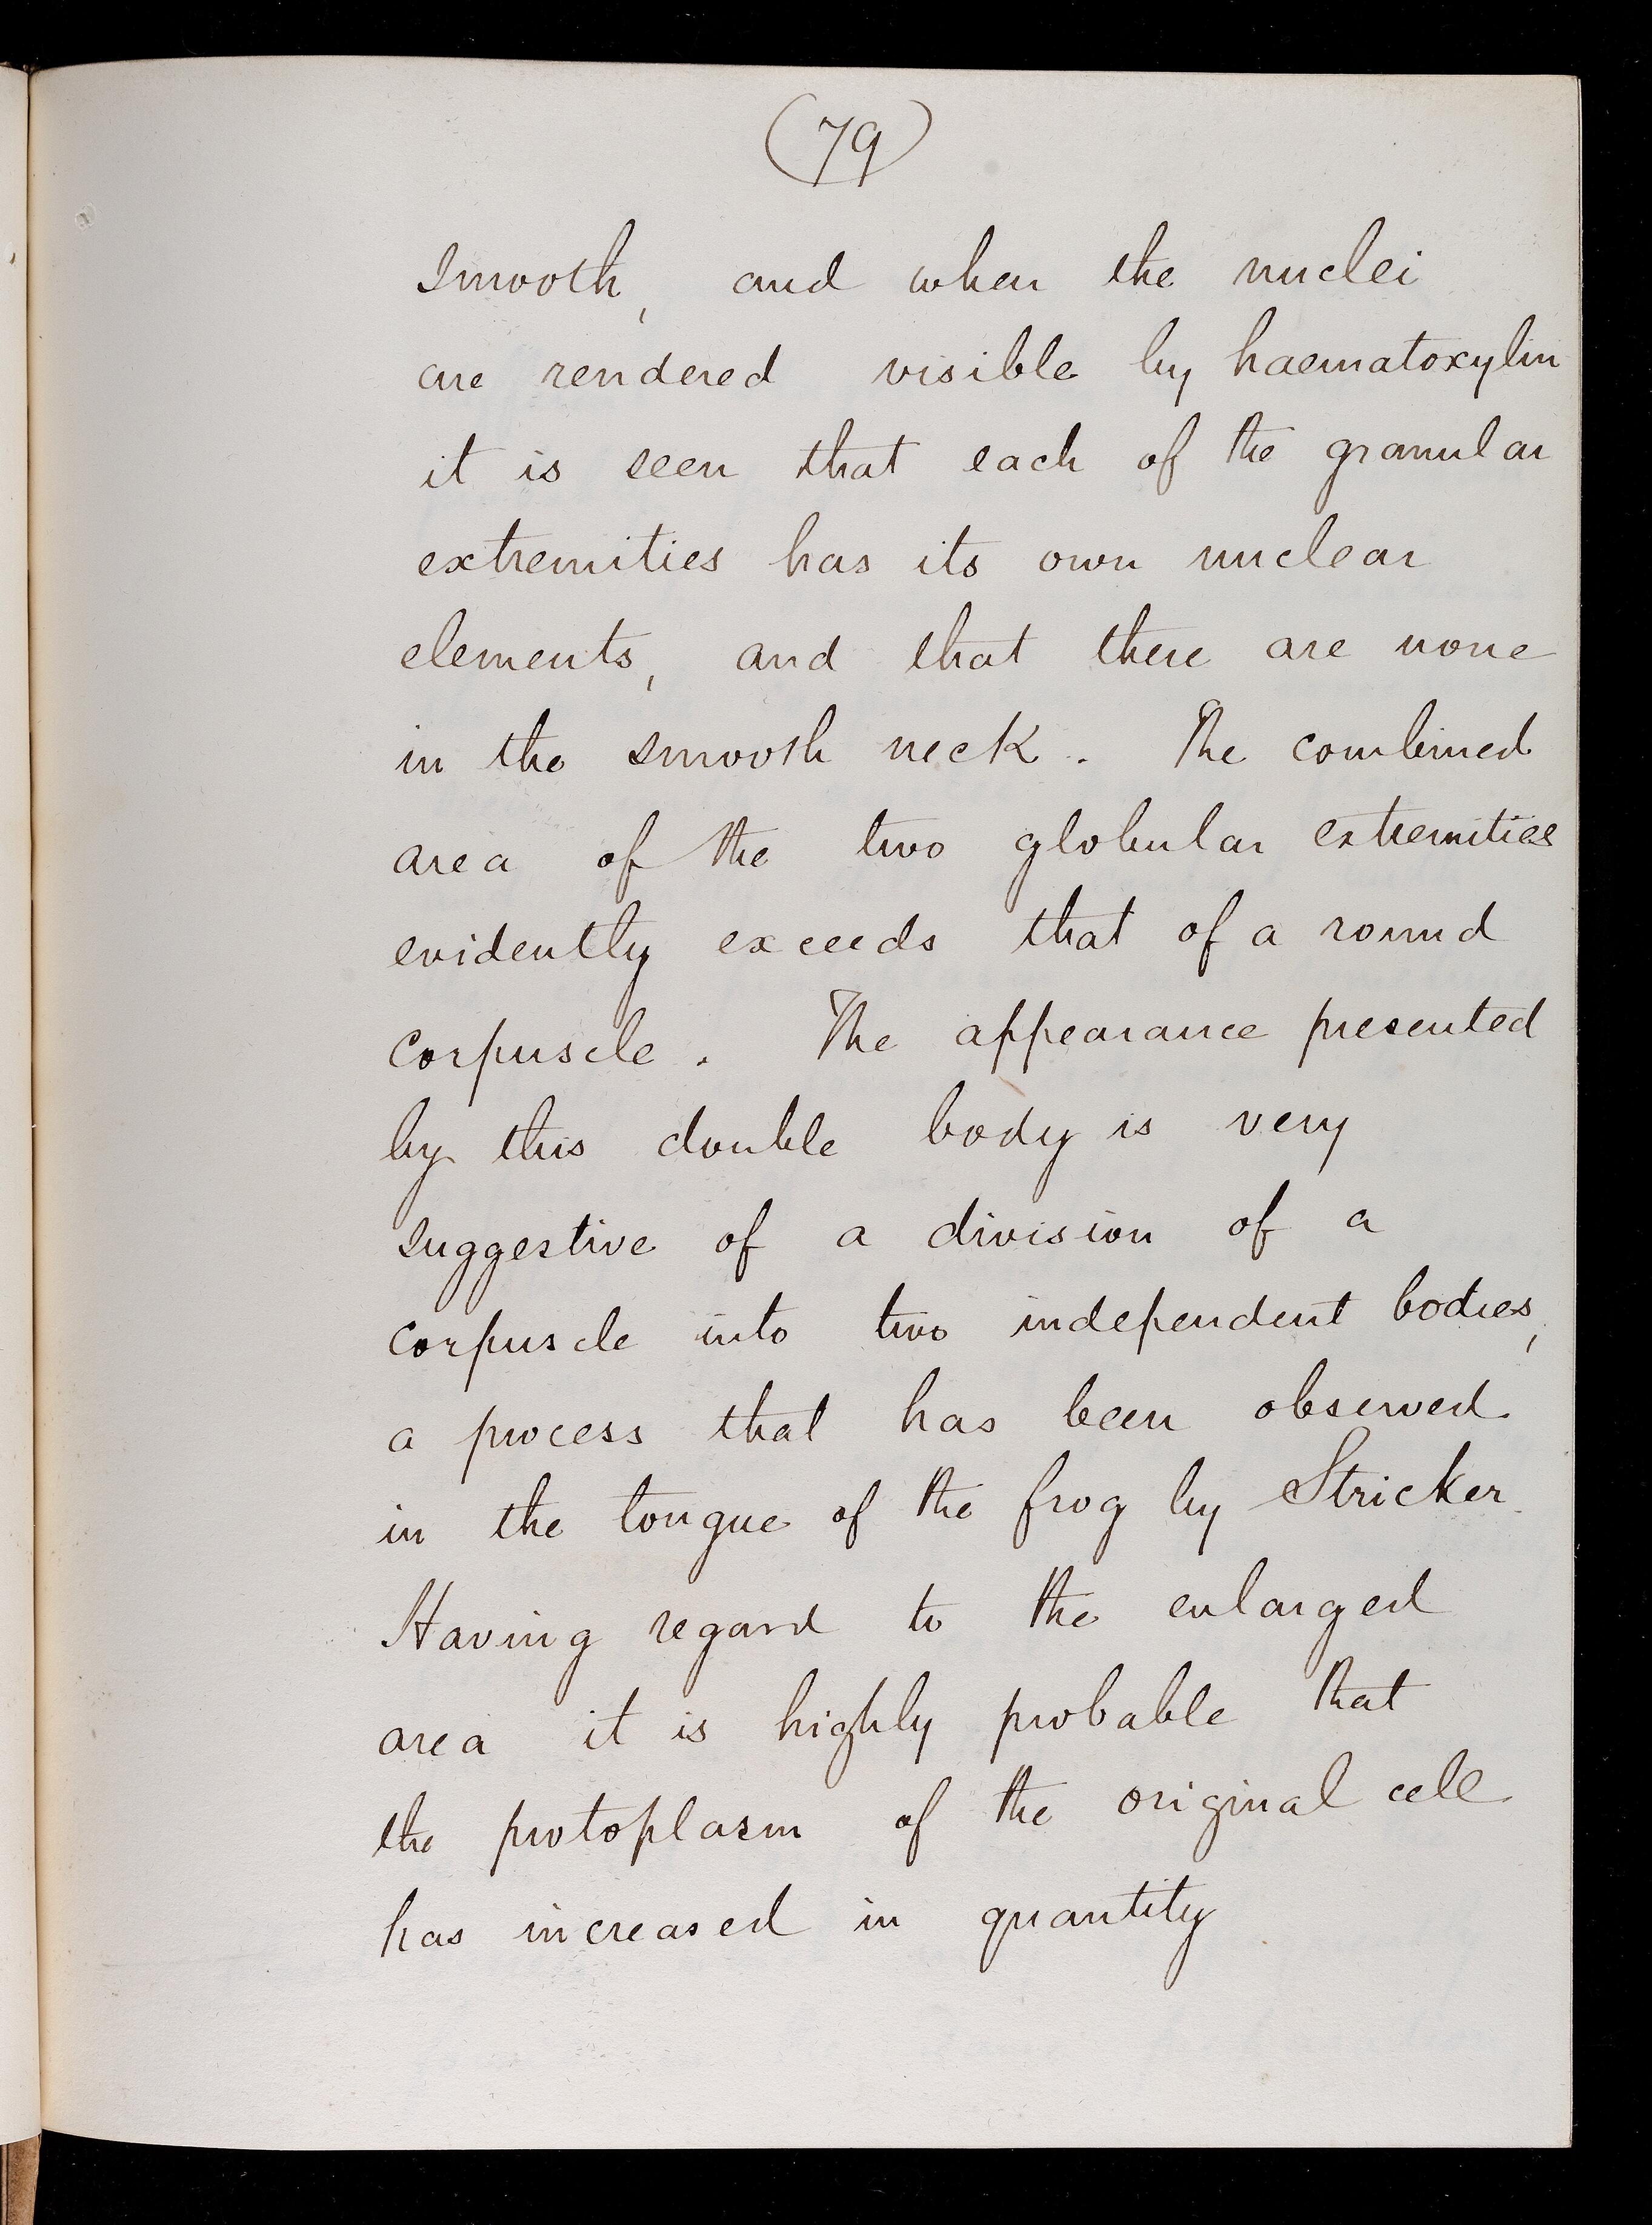 (79)
smooth, and when the nuclei
are rendered visible by haematoxylin
it is seen that each of the granular
extremities has its own nuclear
elements, and that there are none
in the smooth neck. The combined
area of the two globular extremities
evidently exceeds that of a round
corpuscle. The appearance presented
by this double body is very
suggestive of a division of a
corpuscle into two independent bodies,
a process that has been observed
in the tongue of the frog by Stricker.
Having regard to the enlarged
area it is highly probable that
the protoplasm of the original cell
has increased in quantity